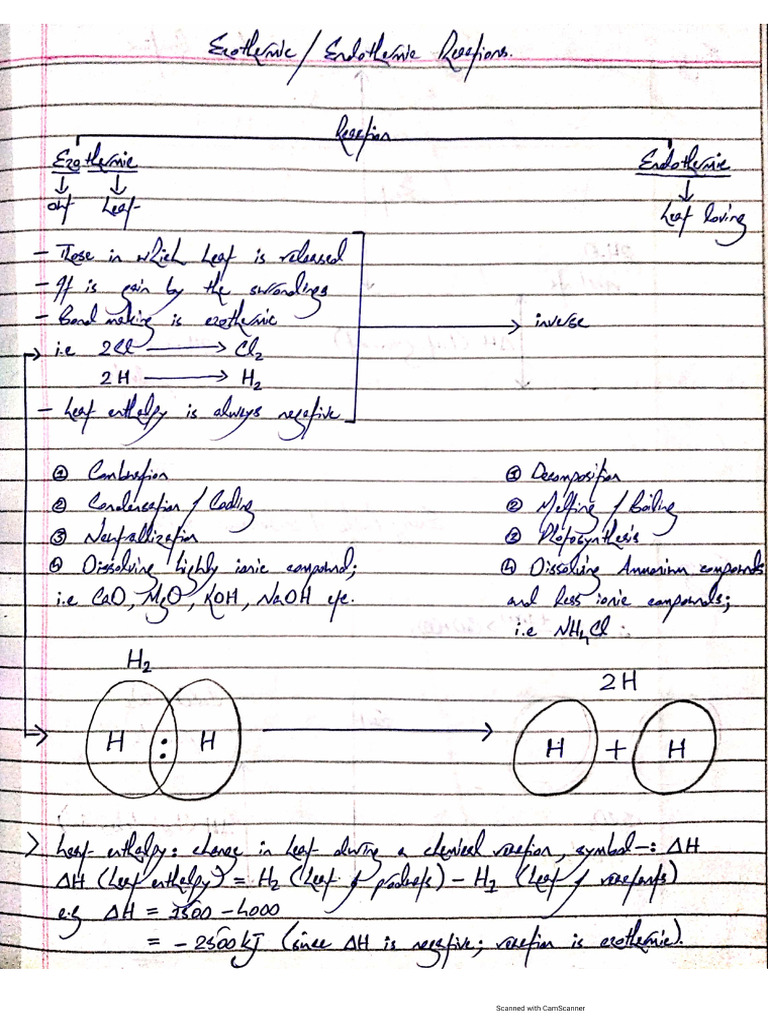 Exothermic / Endothermic Reactions.
Reaction
Exothermic
out heat
Endothermic
heat loving
- Those in which heat is released
- It is gain by the surrondings
- Bond making is exothermic
i.e 2Cl → Cl₂
2H → H₂
- Heat enthalpy is always negative
inverse
① Combination
② Condensation / Cooling
③ Neutrallization
④ Dissolving highly ionic compound;
i.e CaO, MgO, KOH, NaOH etc.
① Decomposition
② Melting / Boiling
③ Photosynthesis
④ Dissolving Ammonium compounds
and less ionic compounds;
i.e NH₄Cl
H₂
H : H
2H
H + H
> Heat enthalpy: change in heat during a chemical reaction, symbol -: ΔH
ΔH (heat enthalpy) = H₂ (heat of products) - H₁ (heat of reactants)
e.g ΔH = 1500 - 4000
= - 2500 kJ (since ΔH is negative; reaction is exothermic).
Scanned with CamScanner